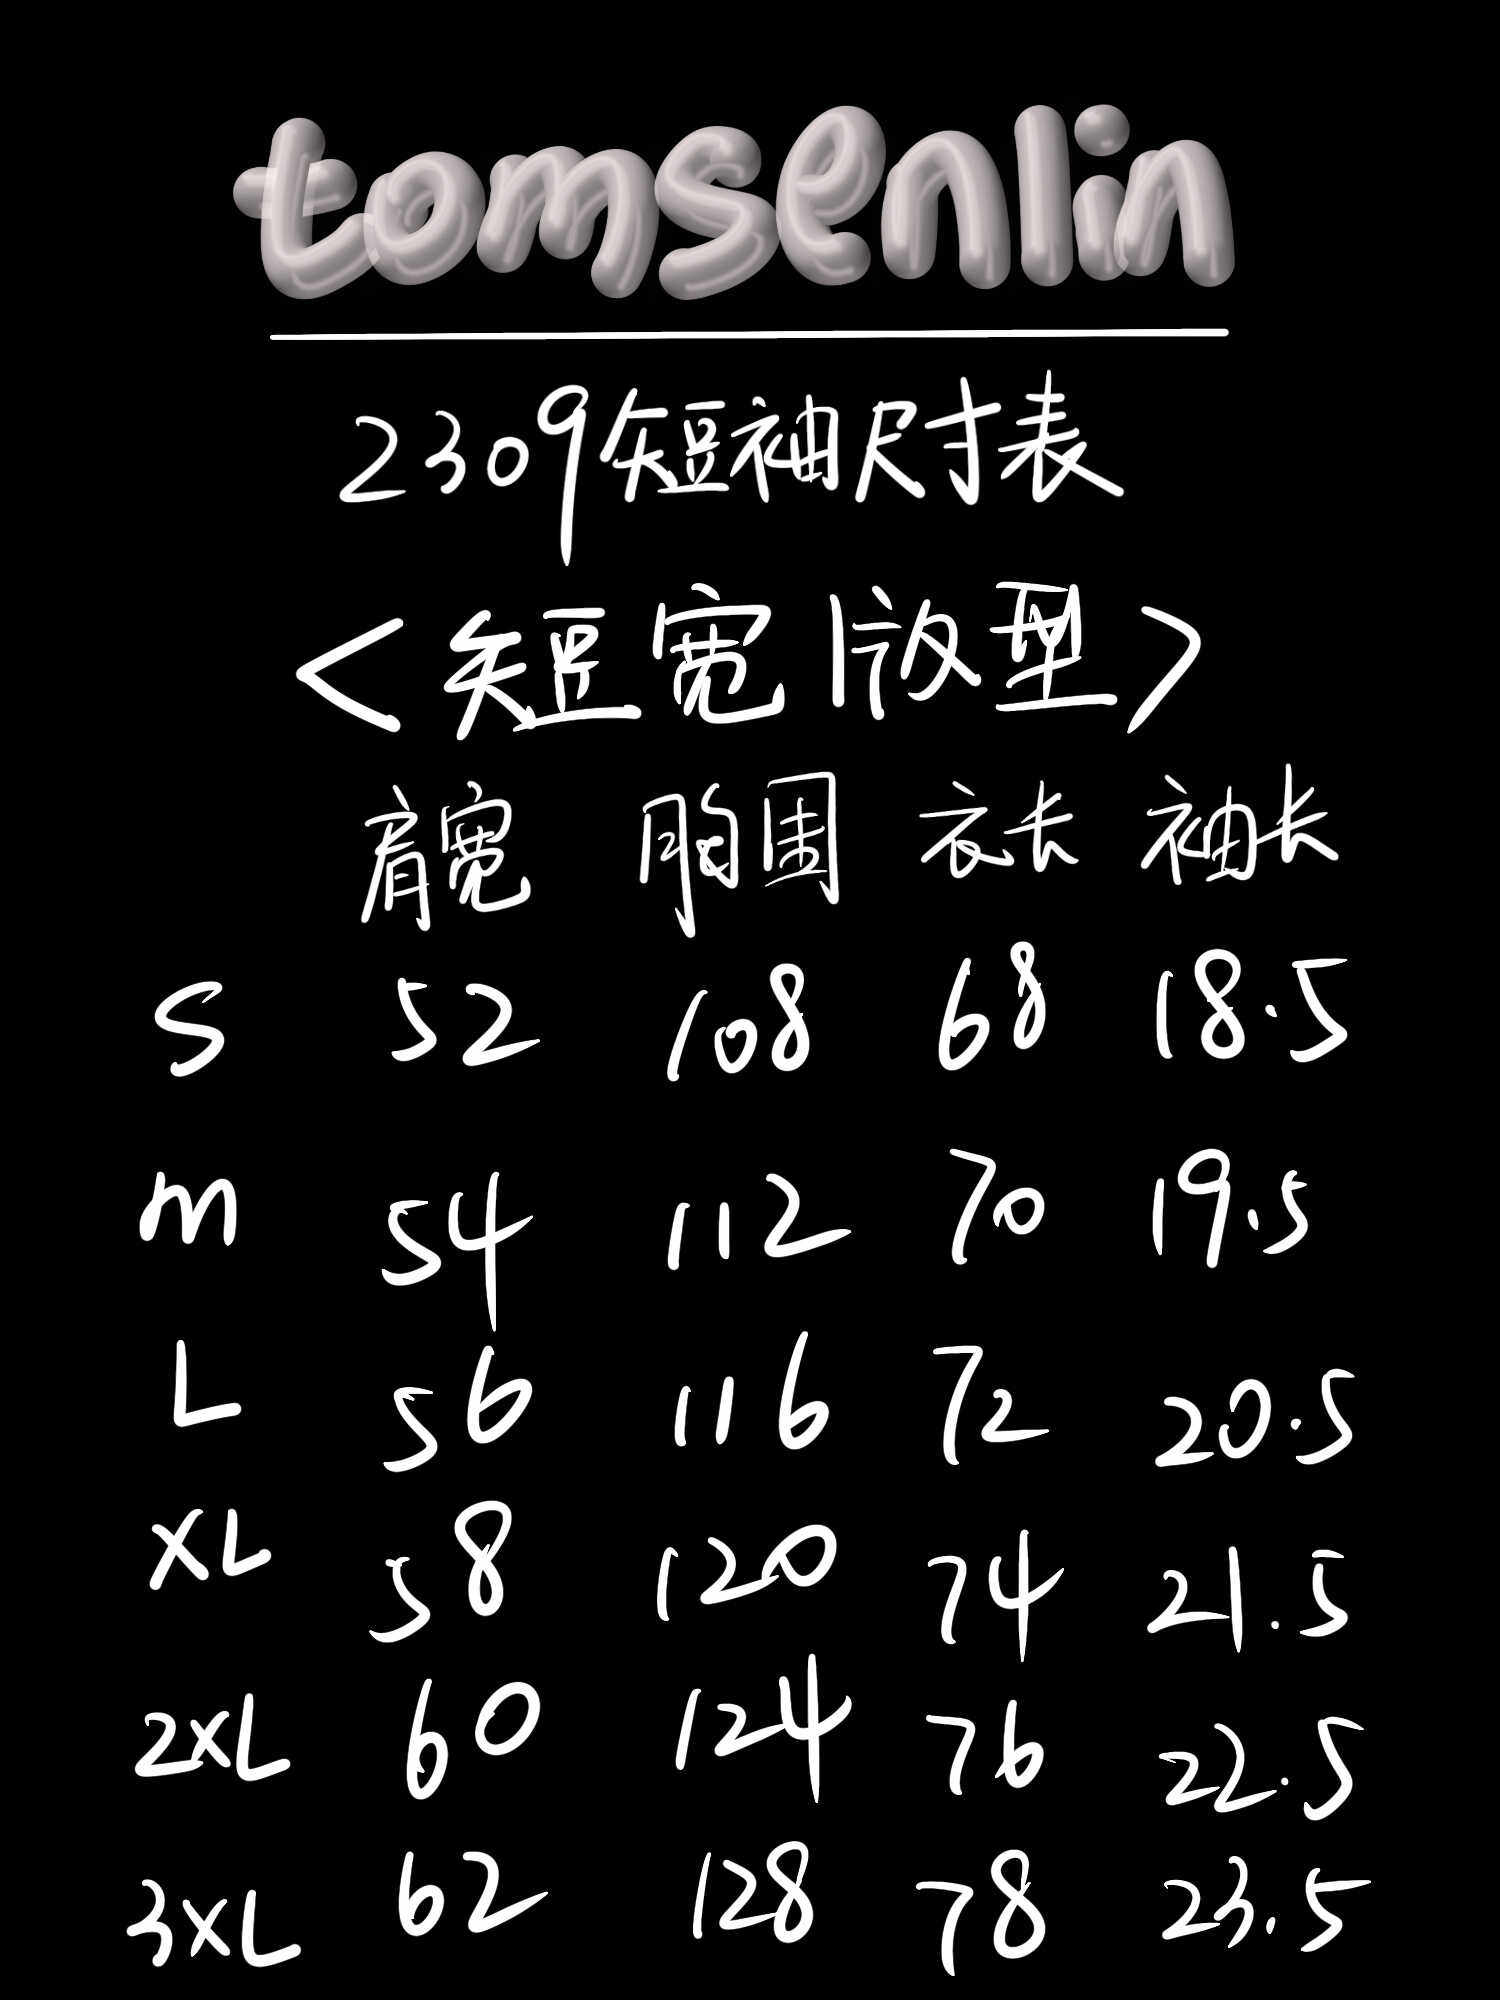 tomsenlin
2309短袖尺寸表
<短宽版型>
肩宽 胸围 衣长 袖长
S 52 108 68 18.5
m 54 112 70 19.5
L 56 116 72 20.5
XL 58 120 74 21.5
2XL 60 124 76 22.5
3XL 62 128 78 23.5